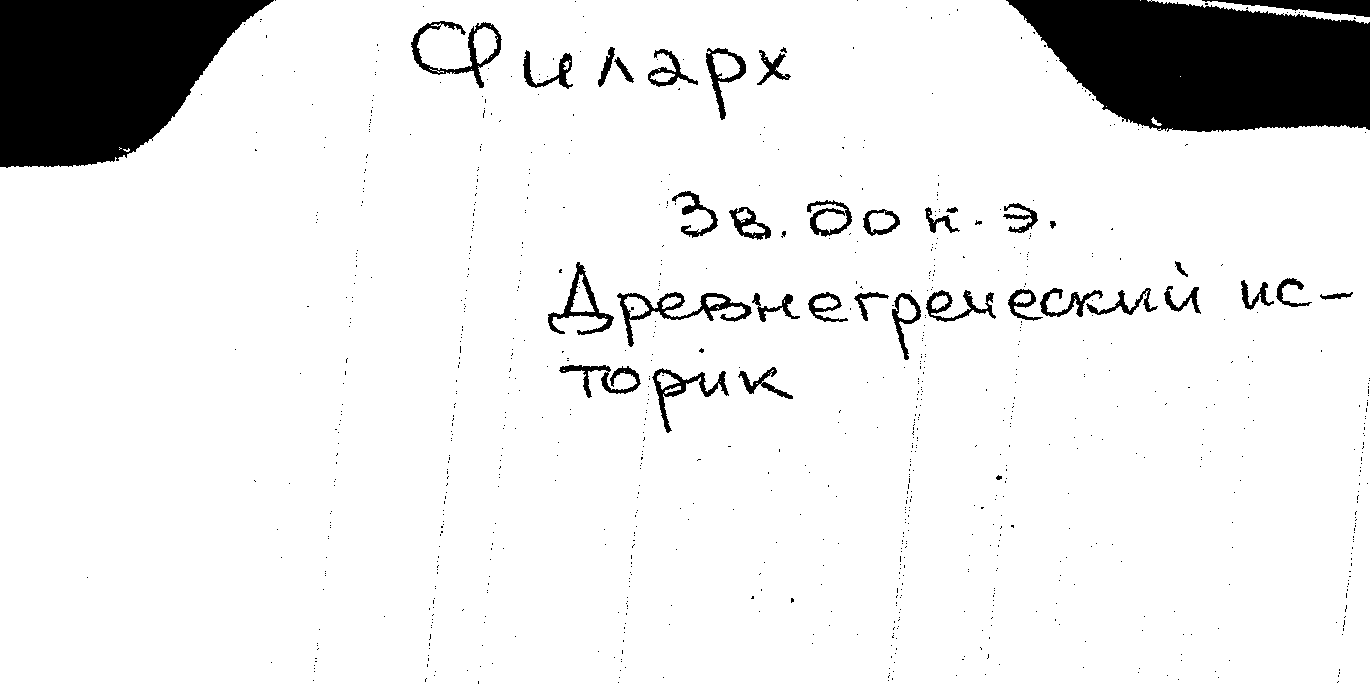 Филарх
3 в. до н. э.
Древнегреческий ис-
торик